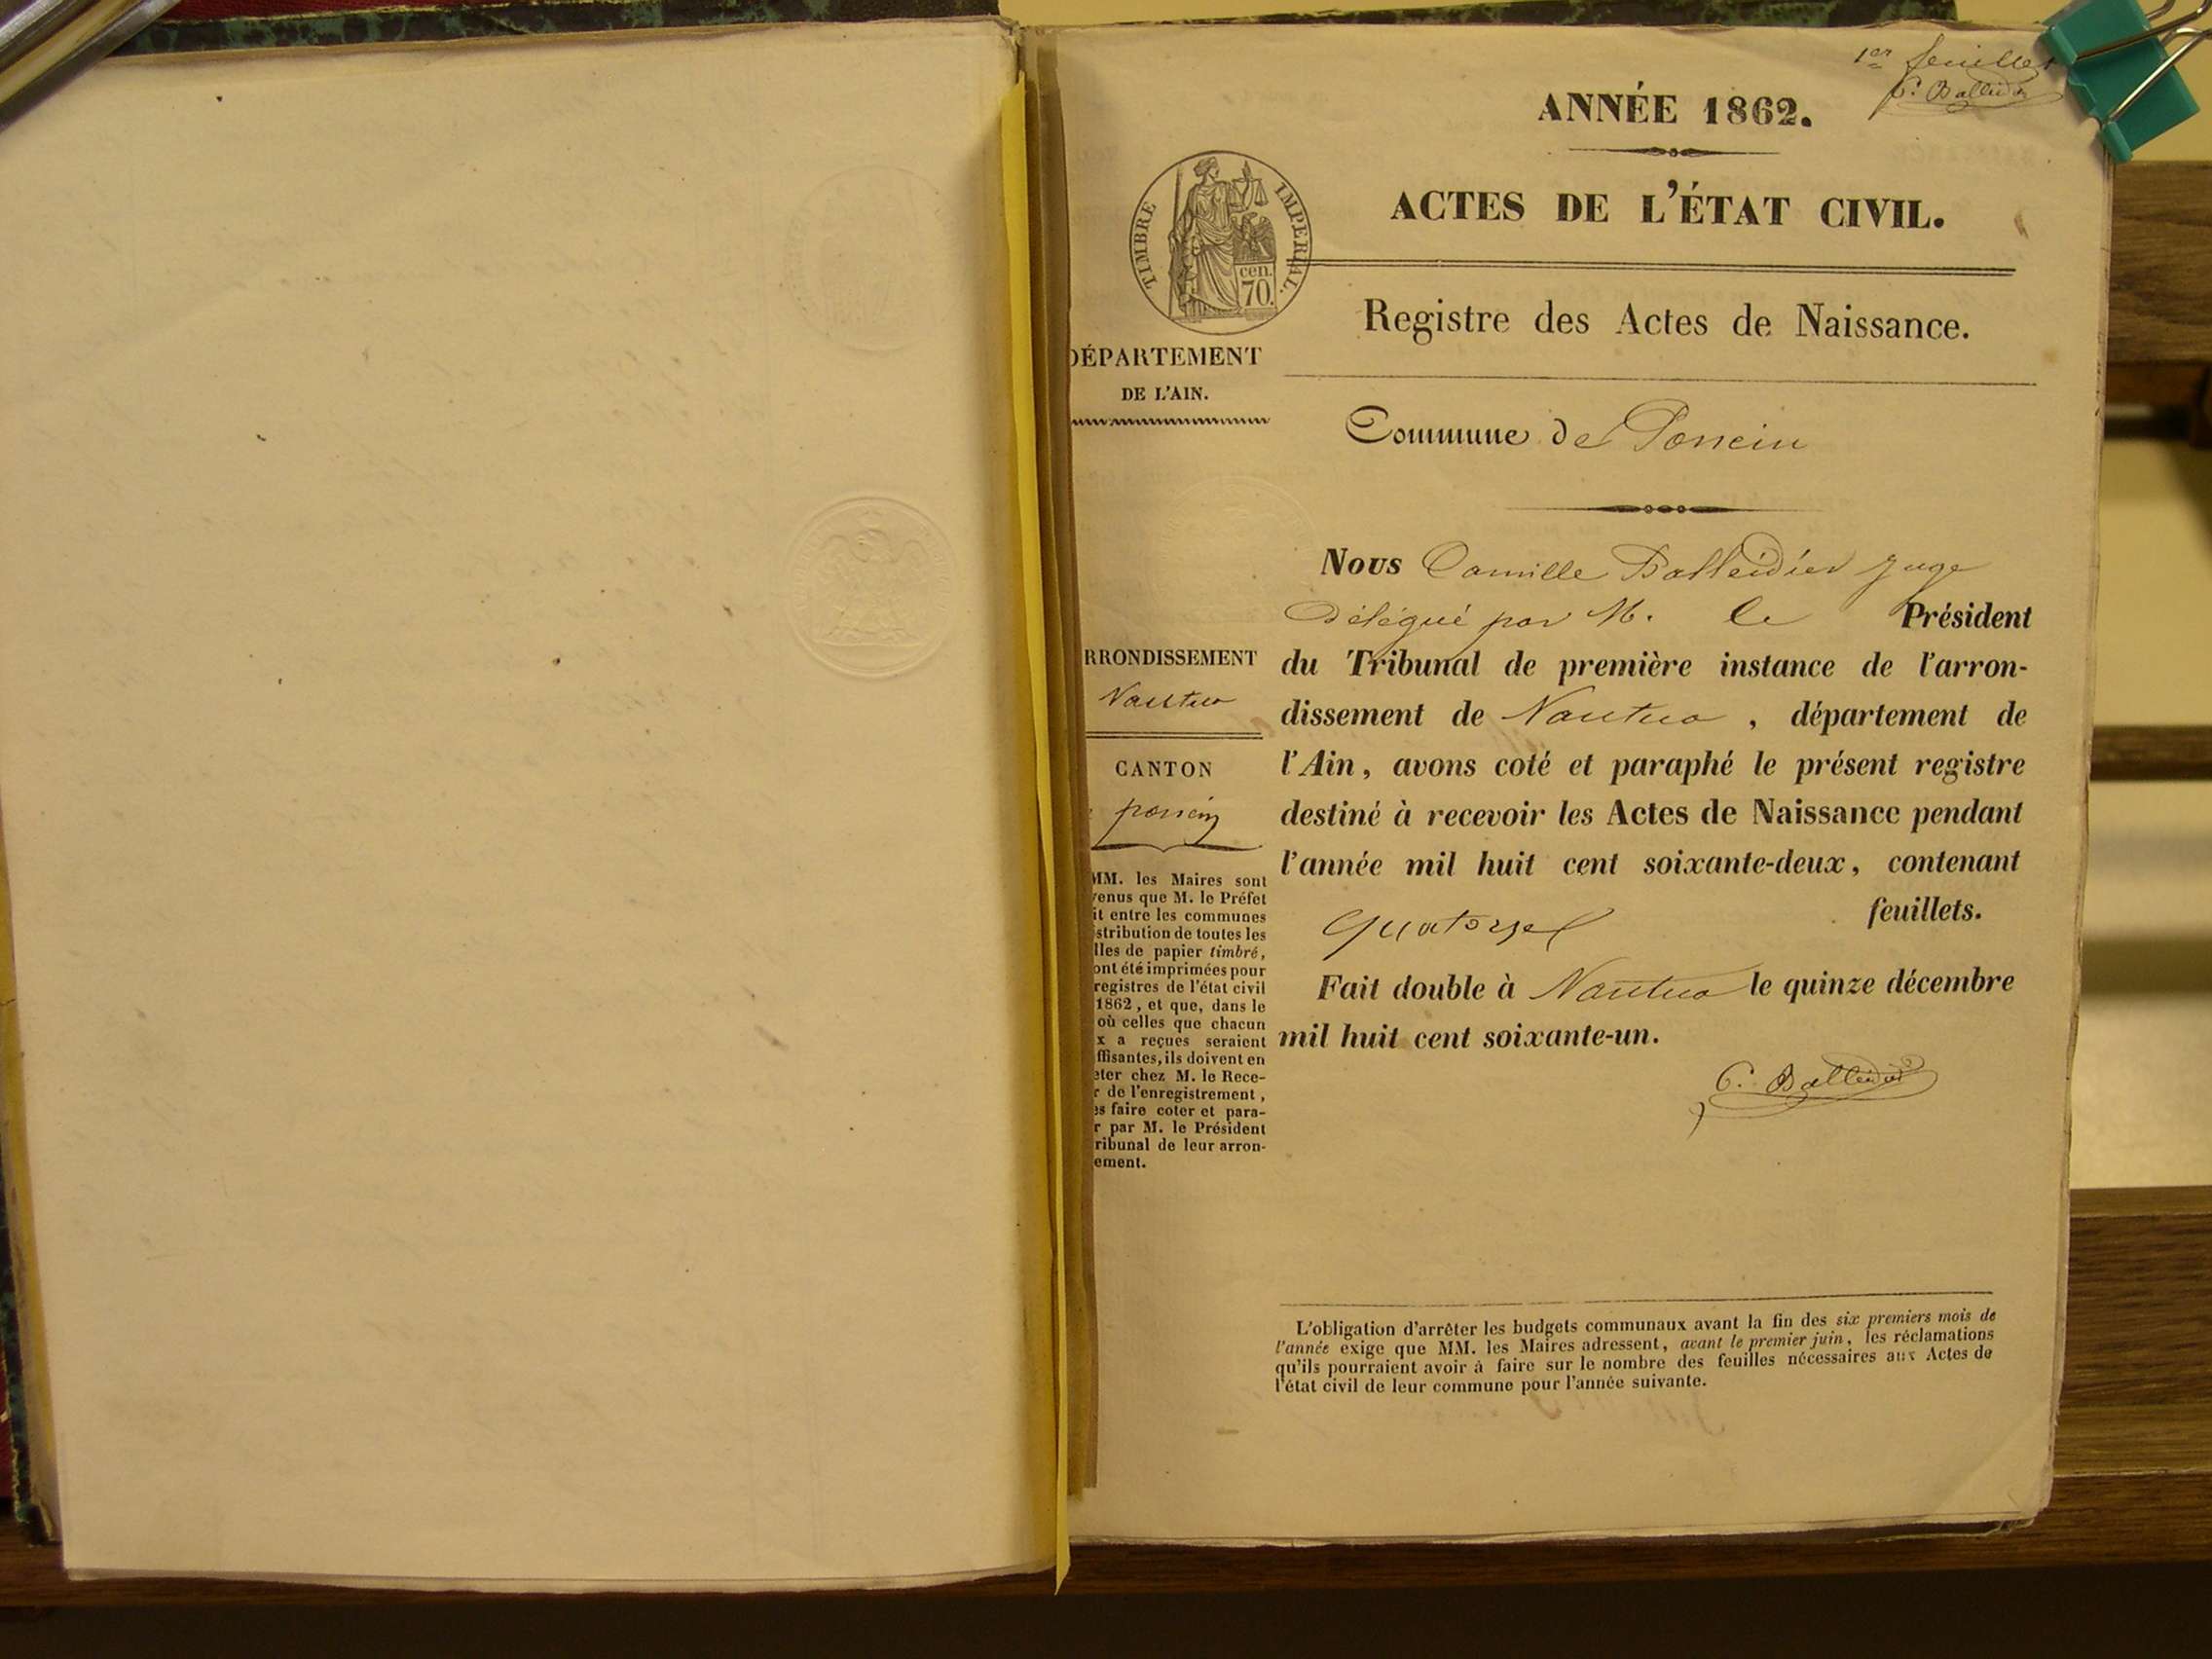 1er feuillet
C. Balleidier
ANNÉE 1862.
ACTES DE L'ÉTAT CIVIL.
TIMBRE IMPERIAL.
cen.
70.
Registre des Actes de Naissance.
DÉPARTEMENT
DE L'AIN.
Commune de Poncin
RRONDISSEMENT
Nantua
CANTON
poncin
MM. les Maires sont
venus que M. le Préfet
it entre les communes
stribution de toutes les
lles de papier timbré,
ont été imprimées pour
registres de l'état civil
1862, et que, dans le
où celles que chacun
x a reçues seraient
ffisantes, ils doivent en
eter chez M. le Rece-
r de l'enregistrement,
es faire coter et para-
r par M. le Président
ribunal de leur arron-
ement.
Nous Camille Balleidier Juge
Délégué par M. le Président
du Tribunal de première instance de l'arron-
dissement de Nantua, département de
l'Ain, avons coté et paraphé le présent registre
destiné à recevoir les Actes de Naissance pendant
l'année mil huit cent soixante-deux, contenant
quatorze feuillets.
Fait double à Nantua le quinze décembre
mil huit cent soixante-un.
C. Balleidier
L'obligation d'arrêter les budgets communaux avant la fin des six premiers mois de
l'année exige que MM. les Maires adressent, avant le premier juin, les réclamations
qu'ils pourraient avoir à faire sur le nombre des feuilles nécessaires aux Actes de
l'état civil de leur commune pour l'année suivante.